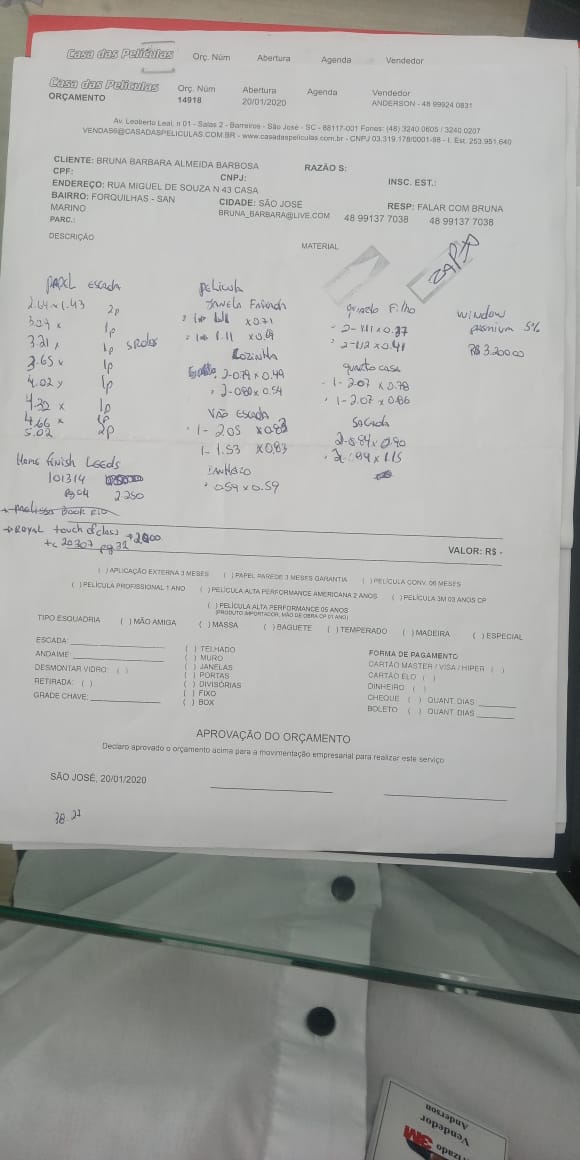 Casa das Películas Orç. Núm Abertura Agenda Vendedor
Casa das Películas Orç. Núm Abertura Agenda Vendedor
ORÇAMENTO 14918 20/01/2020 ANDERSON - 48 99924 0831
Av. Leoberto Leal, n 01 - Salas 2 - Barreiros - São José - SC - 88117-001 Fones: (48) 3240 0605 / 3240 0207
VENDAS6@CASADASPELICULAS.COM.BR - www.casadaspeliculas.com.br - CNPJ 03.319.178/0001-98 - I. Est. 253.951.640
CLIENTE: BRUNA BARBARA ALMEIDA BARBOSA RAZÃO S:
CPF: CNPJ: INSC. EST.:
ENDEREÇO: RUA MIGUEL DE SOUZA N 43 CASA
BAIRRO: FORQUILHAS - SAN MARINO CIDADE: SÃO JOSÉ RESP: FALAR COM BRUNA
BRUNA_BARBARA@LIVE.COM 48 99137 7038 48 99137 7038
PARC.:
DESCRIÇÃO MATERIAL
ZAPA
PAPEL Escada
2p
1p
3.21 1p 5 Rolos
3.65 x 1p
4.02 x 1p
4.32 x 1p
4.66 x
5.02 2p
Home Finish Leeds
101314
Pg 04 2.250
+ Royal touch of class +2000
tc 20307 pg 32
Película
Janela Fachada
x 0.71
1.11
Cozinha
2-0.79 x 0.49
2-080 x 0.54
Vão Escada
1-205 x 0.83
1-1.53 x 0.83
Banheiro
059 x 0.59
quarto Filho
2-1.11 x 0.37
2-1.12 x 0.41
quarto casal
1-2.07 x 0.78
1-2.07 x 0.86
Sacada
2-0.84 x 0.90
window
premium 5%
R$ 3.200 00
VALOR: R$ -
( ) APLICAÇÃO EXTERNA 3 MESES ( ) PAPEL PAREDE 3 MESES GARANTIA ( ) PELÍCULA CONV. 06 MESES
( ) PELÍCULA PROFISSIONAL 1 ANO ( ) PELÍCULA ALTA PERFORMANCE AMERICANA 2 ANOS ( ) PELÍCULA 3M 03 ANOS CP
( ) PELÍCULA ALTA PERFORMANCE 05 ANOS
(PRODUTO IMPORTADOR, MÃO DE OBRA CP 01 ANO)
TIPO ESQUADRIA ( ) MÃO AMIGA ( ) MASSA ( ) BAGUETE ( ) TEMPERADO ( ) MADEIRA ( ) ESPECIAL
ESCADA:
ANDAIME
DESMONTAR VIDRO: ( )
RETIRADA: ( )
GRADE CHAVE:
( ) TELHADO
( ) MURO
( ) JANELAS
( ) PORTAS
( ) DIVISÓRIAS
( ) FIXO
( ) BOX
FORMA DE PAGAMENTO
CARTÃO MASTER / VISA / HIPER ( )
CARTÃO ELO ( )
DINHEIRO ( )
CHEQUE ( ) QUANT. DIAS
BOLETO ( ) QUANT. DIAS
APROVAÇÃO DO ORÇAMENTO
Declaro aprovado o orçamento acima para a movimentação empresarial para realizar este serviço
SÃO JOSÉ, 20/01/2020
38.27
Anderson
Vendedor
3M